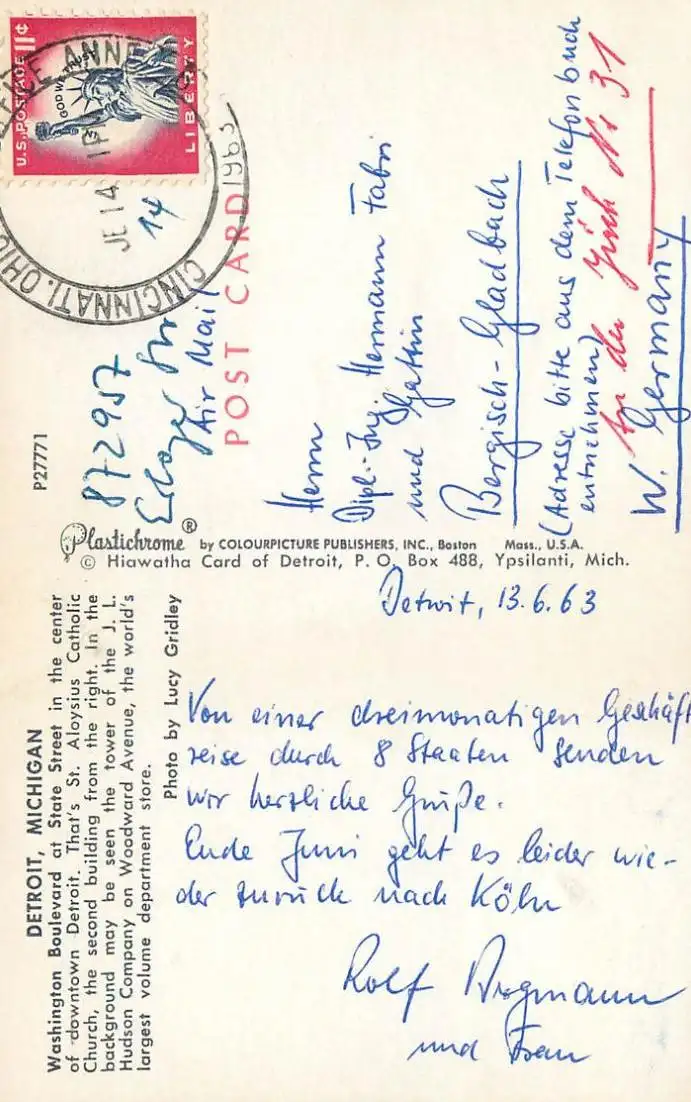 DETROIT, MICHIGAN
Washington Boulevard at State Street in the center
of downtown Detroit. That's St. Aloysius Catholic
Church, the second building from the right. In the
background may be seen the tower of the J. L.
Hudson Company on Woodward Avenue, the world's
largest volume department store.
Photo by Lucy Gridley
P27771
Plastichrome ® by COLOURPICTURE PUBLISHERS, INC., Boston Mass., U.S.A.
© Hiawatha Card of Detroit, P. O. Box 488, Ypsilanti, Mich.
POST CARD
U.S. POSTAGE 11¢
IN GOD WE TRUST
LIBERTY
CINCINNATI, OHIO
JE 14
1963
14
872957
Air Mail
Detroit, 13.6.63
Von einer dreimonatigen Geschäfts
reise durch 8 Staaten senden
wir herzliche Grüße.
Ende Juni geht es leider wie-
der zurück nach Köln
Rolf
und Frau
Herrn
Dipl.-Ing. Hermann Fabri
und Gattin
Bergisch-Gladbach
(Adresse bitte aus dem Telefonbuch
entnehmen)
An der Nr 31
W. Germany